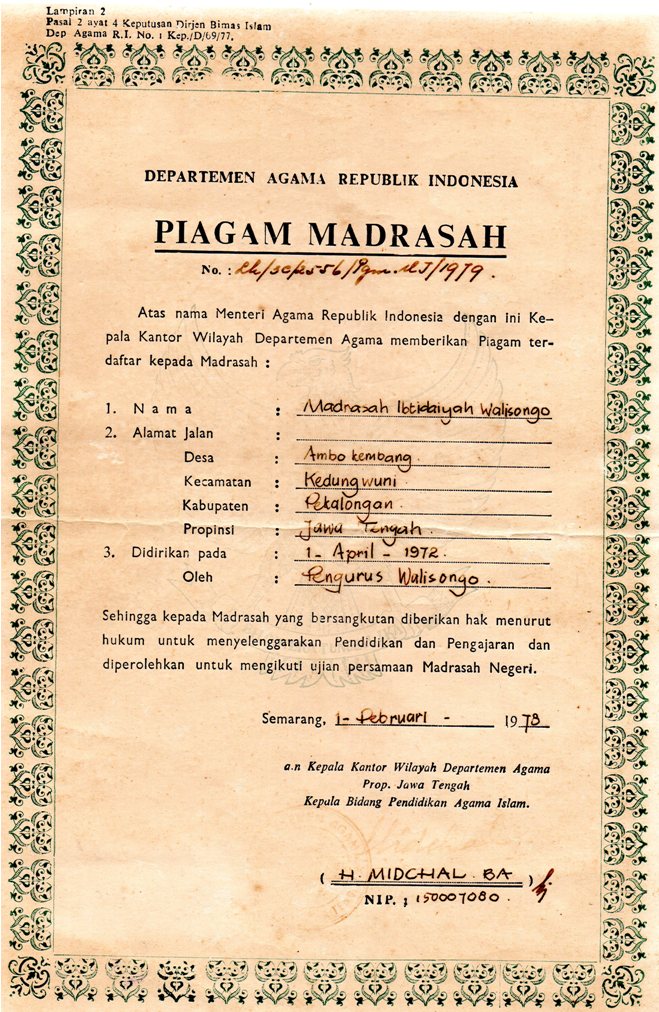 Lampiran 2
Pasal 2 ayat 4 Keputusan Dirjen Bimas Islam
Dep Agama R.I. No. 1 Kep./D/69/77.
DEPARTEMEN AGAMA REPUBLIK INDONESIA
PIAGAM MADRASAH
No. : Lk/3c/2556/Pgm.MI/1979.
Atas nama Menteri Agama Republik Indonesia dengan ini Ke-
pala Kantor Wilayah Departemen Agama memberikan Piagam ter-
daftar kepada Madrasah :
1. Nama : Madrasah Ibtidaiyah Walisongo
2. Alamat Jalan :
Desa : Ambo kembang.
Kecamatan : Kedungwuni.
Kabupaten : Pekalongan.
Propinsi : Jawa Tengah.
3. Didirikan pada : 1 - April - 1972.
Oleh : Pengurus Walisongo.
Sehingga kepada Madrasah yang bersangkutan diberikan hak menurut
hukum untuk menyelenggarakan Pendidikan dan Pengajaran dan
diperolehkan untuk mengikuti ujian persamaan Madrasah Negeri.
Semarang, 1 - Pebruari - 1978
a.n Kepala Kantor Wilayah Departemen Agama
Prop. Jawa Tengah
Kepala Bidang Pendidikan Agama Islam.
( H. MIDCHAL. BA )
NIP. ; 150007080.